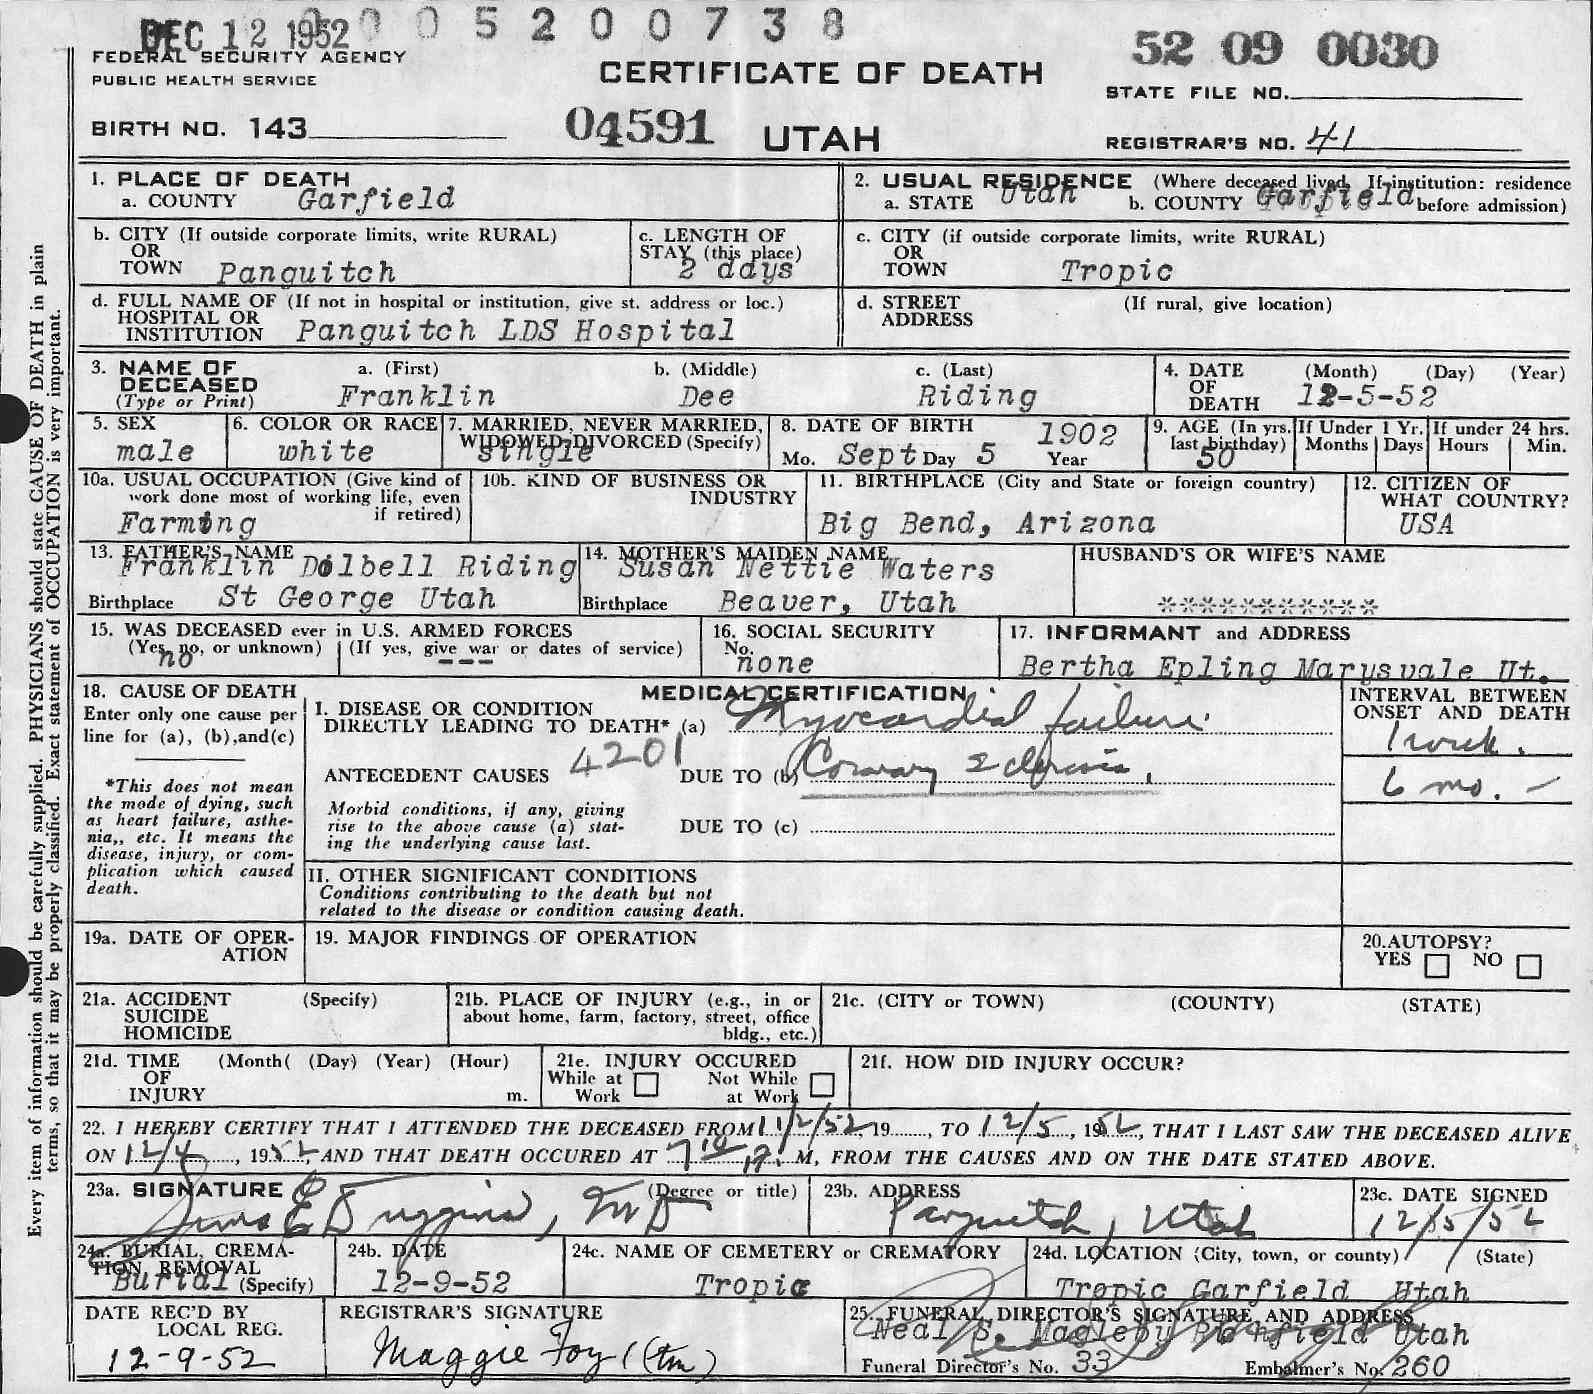 DEC 12 1952
0005200738
52 09 0030
FEDERAL SECURITY AGENCY
PUBLIC HEALTH SERVICE
CERTIFICATE OF DEATH
STATE FILE NO.
BIRTH NO. 143
04591 UTAH
REGISTRAR'S NO. 41
1. PLACE OF DEATH
a. COUNTY Garfield
2. USUAL RESIDENCE (Where deceased lived. If institution: residence before admission)
a. STATE Utah b. COUNTY Garfield
b. CITY (If outside corporate limits, write RURAL)
OR
TOWN Panguitch
c. LENGTH OF
STAY (this place)
2 days
c. CITY (if outside corporate limits, write RURAL)
OR
TOWN Tropic
d. FULL NAME OF (If not in hospital or institution, give st. address or loc.)
HOSPITAL OR
INSTITUTION Panguitch LDS Hospital
d. STREET (If rural, give location)
ADDRESS
3. NAME OF
DECEASED
(Type or Print)
a. (First) b. (Middle) c. (Last)
Franklin Dee Riding
4. DATE (Month) (Day) (Year)
OF
DEATH 12-5-52
5. SEX
male
6. COLOR OR RACE
white
7. MARRIED, NEVER MARRIED,
WIDOWED, DIVORCED (Specify)
single
8. DATE OF BIRTH 1902
Mo. Sept Day 5 Year
9. AGE (In yrs.
last birthday)
50
If Under 1 Yr.
Months Days
If under 24 hrs.
Hours Min.
10a. USUAL OCCUPATION (Give kind of
work done most of working life, even
if retired)
Farming
10b. KIND OF BUSINESS OR
INDUSTRY
11. BIRTHPLACE (City and State or foreign country)
Big Bend, Arizona
12. CITIZEN OF
WHAT COUNTRY?
USA
13. FATHER'S NAME
Franklin Dolbell Riding
Birthplace St George Utah
14. MOTHER'S MAIDEN NAME
Susan Nettie Waters
Birthplace Beaver, Utah
HUSBAND'S OR WIFE'S NAME
***********
15. WAS DECEASED ever in U.S. ARMED FORCES
(Yes, no, or unknown) (If yes, give war or dates of service)
no ---
16. SOCIAL SECURITY
No.
none
17. INFORMANT and ADDRESS
Bertha Epling Marysvale Ut.
18. CAUSE OF DEATH
Enter only one cause per
line for (a), (b),and(c)
*This does not mean
the mode of dying, such
as heart failure, asthe-
nia,, etc. It means the
disease, injury, or com-
plication which caused
death.
MEDICAL CERTIFICATION
I. DISEASE OR CONDITION
DIRECTLY LEADING TO DEATH* (a) Myocardial failure
4201
ANTECEDENT CAUSES DUE TO (b) Coronary Sclerosis
Morbid conditions, if any, giving
rise to the above cause (a) stat-
ing the underlying cause last.
DUE TO (c)
INTERVAL BETWEEN
ONSET AND DEATH
1 week.
6 mo. -
II. OTHER SIGNIFICANT CONDITIONS
Conditions contributing to the death but not
related to the disease or condition causing death.
19a. DATE OF OPER-
ATION
19. MAJOR FINDINGS OF OPERATION
20.AUTOPSY?
YES NO
21a. ACCIDENT (Specify)
SUICIDE
HOMICIDE
21b. PLACE OF INJURY (e.g., in or
about home, farm, factory, street, office
bldg., etc.)
21c. (CITY or TOWN) (COUNTY) (STATE)
21d. TIME (Month( (Day) (Year) (Hour)
OF
INJURY m.
21e. INJURY OCCURED
While at Work Not While at Work
21f. HOW DID INJURY OCCUR?
22. I HEREBY CERTIFY THAT I ATTENDED THE DECEASED FROM 11/2/52, 19......, TO 12/5, 1952, THAT I LAST SAW THE DECEASED ALIVE
ON 12/4, 1952, AND THAT DEATH OCCURED AT M, FROM THE CAUSES AND ON THE DATE STATED ABOVE.
23a. SIGNATURE (Degree or title)
Sims E Duggins, MD
23b. ADDRESS
Panguitch, Utah
23c. DATE SIGNED
12/5/52
24a. BURIAL, CREMA-
TION, REMOVAL
Burial (Specify)
24b. DATE
12-9-52
24c. NAME OF CEMETERY or CREMATORY
Tropic
24d. LOCATION (City, town, or county) (State)
Tropic Garfield Utah
DATE REC'D BY
LOCAL REG.
12-9-52
REGISTRAR'S SIGNATURE
Maggie Foy (tm)
25. FUNERAL DIRECTOR'S SIGNATURE AND ADDRESS
Neal S. Magleby Richfield Utah
Funeral Director's No. 33 Embalmer's No. 260
Every item of information should be carefully supplied. PHYSICIANS should state CAUSE OF DEATH in plain
terms, so that it may be properly classified. Exact statement of OCCUPATION is very important.